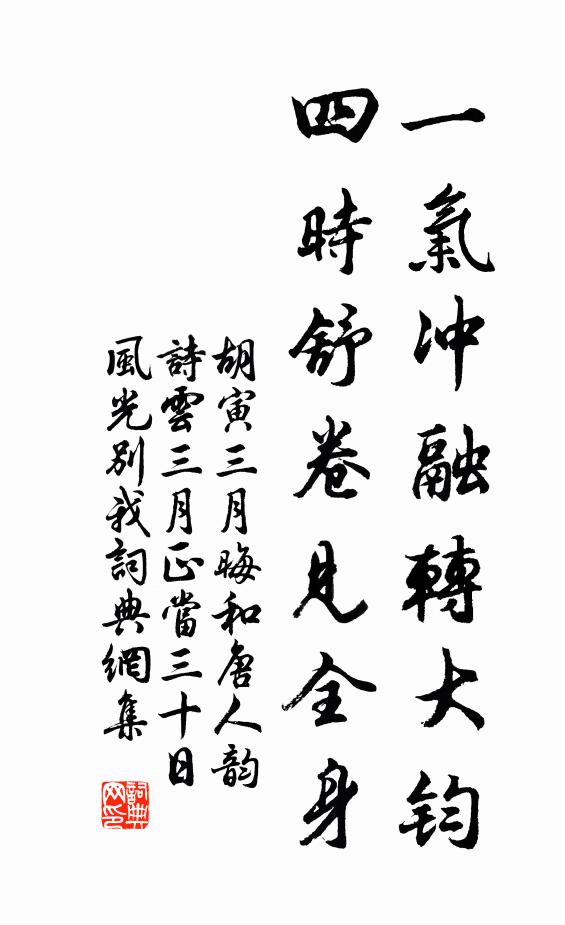 一氣冲融轉大鈞
四時舒卷見全身
胡寅三月晦和唐人韵
詩雲三月正當三十日
風光别我詞典網集
詞典网印